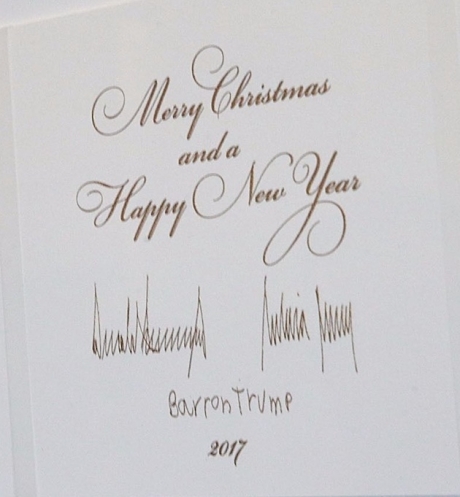 Merry Christmas
and a
Happy New Year
Donald Trump Melania Trump
Barron Trump
2017